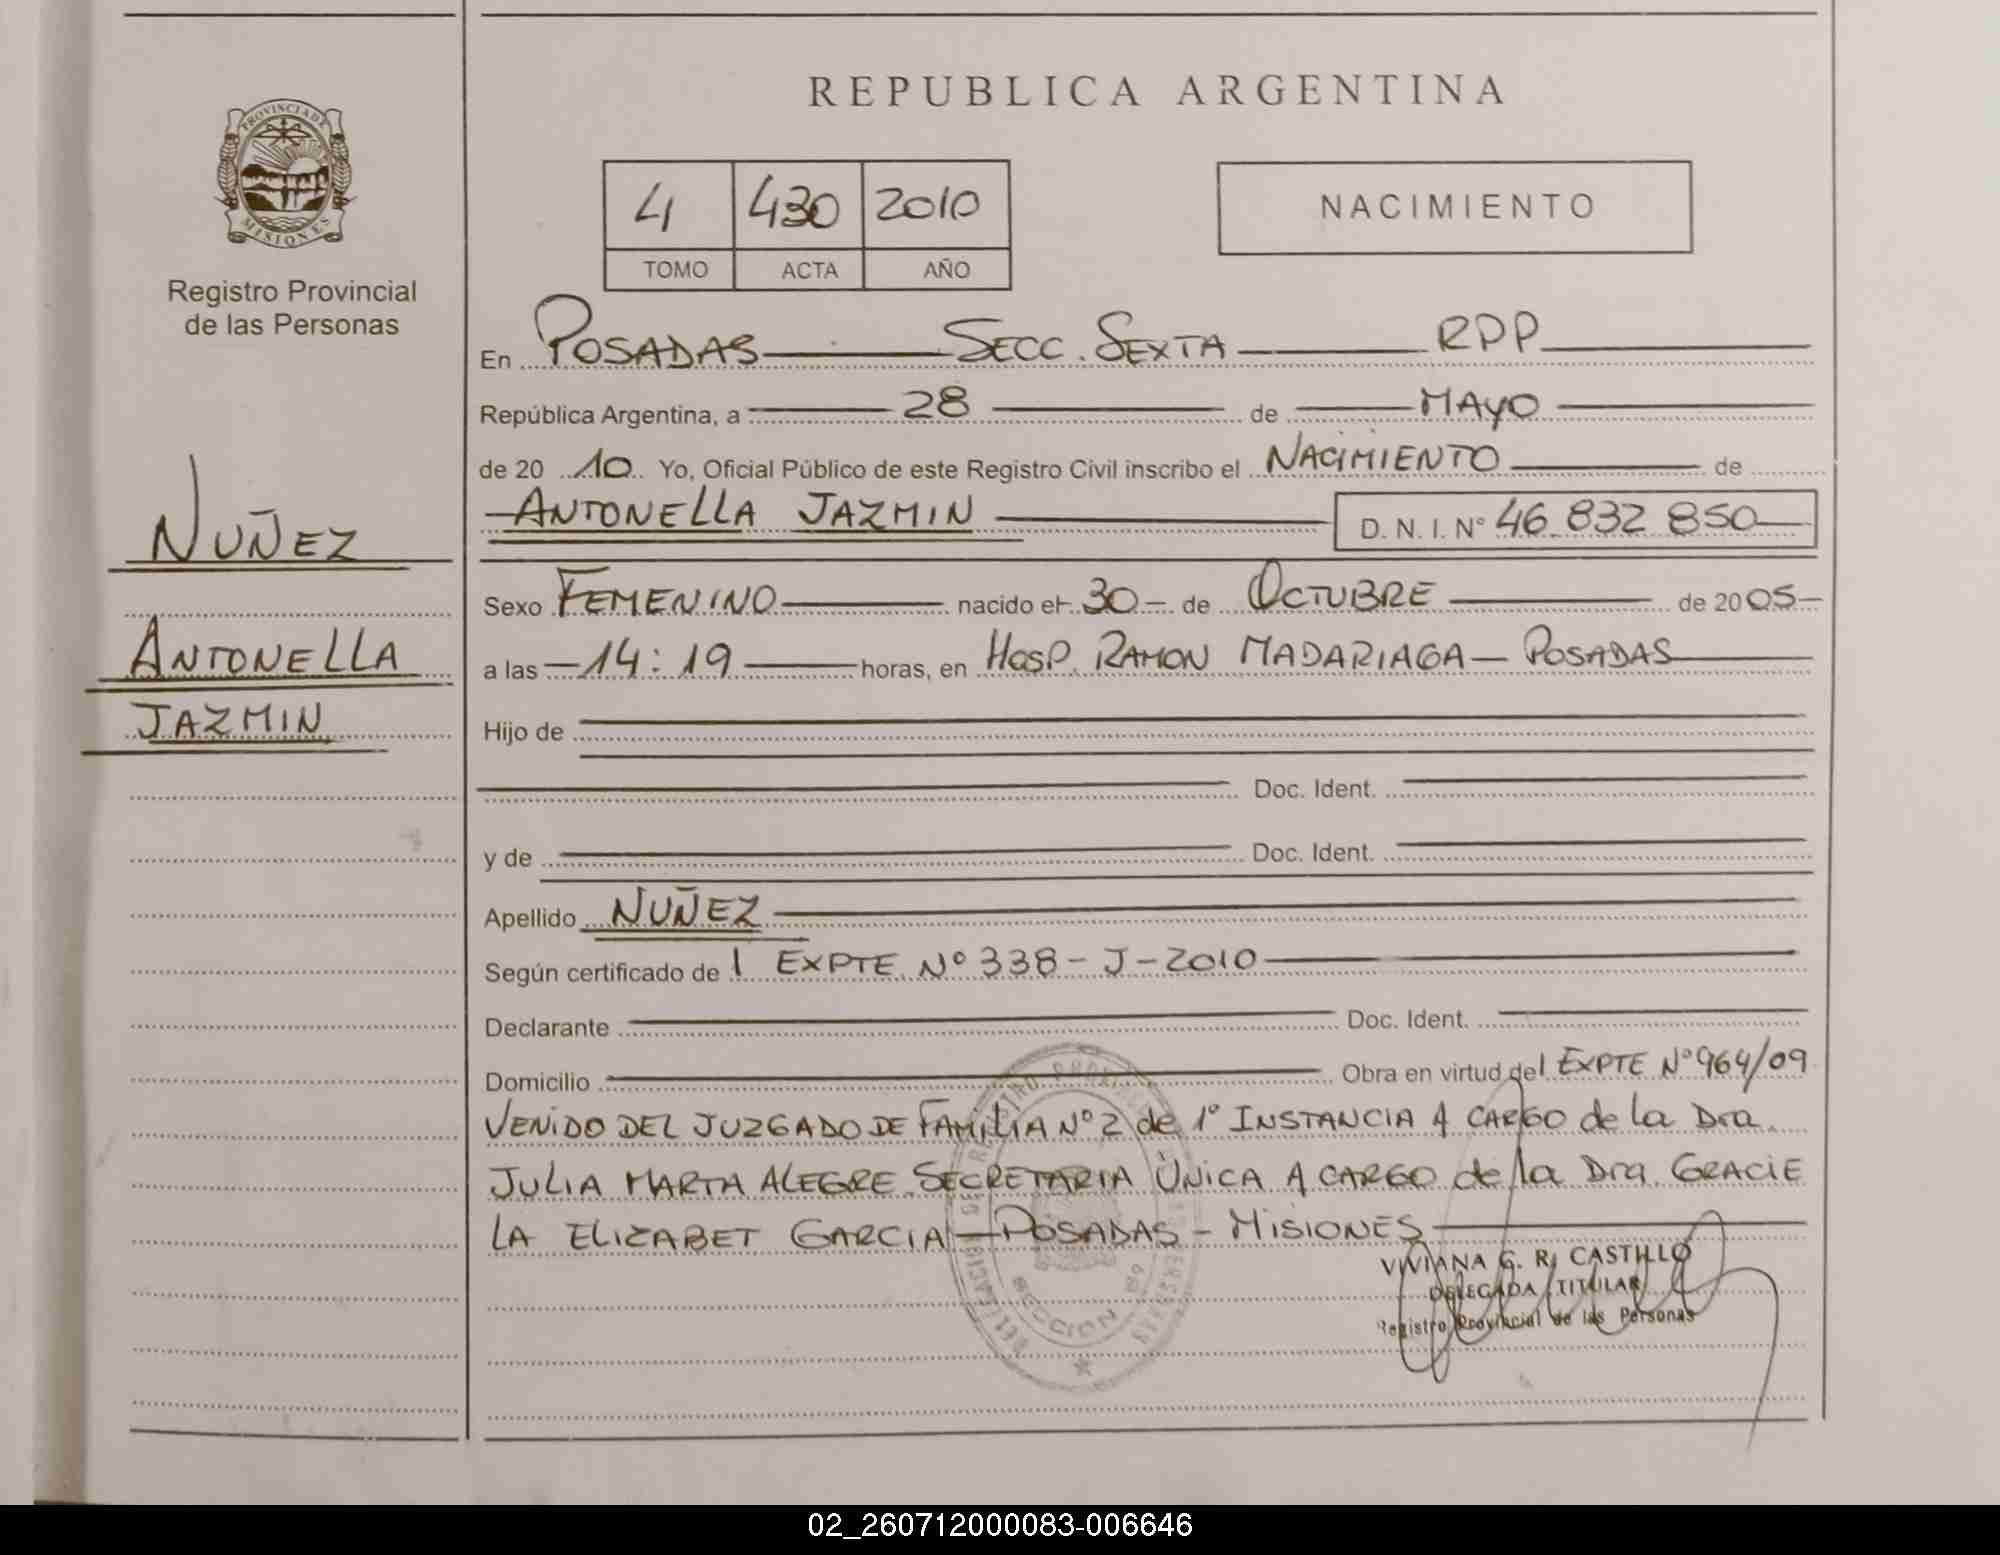 REPUBLICA ARGENTINA
PROVINCIA DE
MISIONES
Registro Provincial
de las Personas
4 430 2010
TOMO ACTA AÑO
NACIMIENTO
En POSADAS SECC. SEXTA RPP
República Argentina, a 28 de MAYO
de 20 10 Yo, Oficial Público de este Registro Civil inscribo el NACIMIENTO de
ANTONELLA JAZMIN D. N. I. N° 46 832 850
NUÑEZ
ANTONELLA
JAZMIN
Sexo FEMENINO nacido el 30 de OCTUBRE de 20 05
a las 14:19 horas, en HOSP. RAMON MADARIAGA - POSADAS
Hijo de
Doc. Ident.
y de Doc. Ident.
Apellido NUÑEZ
Según certificado de l EXPTE. N° 338 - J - 2010
Declarante Doc. Ident.
Domicilio Obra en virtud del EXPTE N° 964/09
VENIDO DEL JUZGADO DE FAMILIA N° 2 de 1° INSTANCIA A CARGO de la Dra.
JULIA MARTA ALEGRE. SECRETARIA ÚNICA A CARGO de la Dra. GRACIE
LA ELIZABET GARCIA - POSADAS - MISIONES
VIVIANA G. R. CASTILLO
DELEGADA TITULAR
Registro Provincial de las Personas
SECCION
02_260712000083-006646